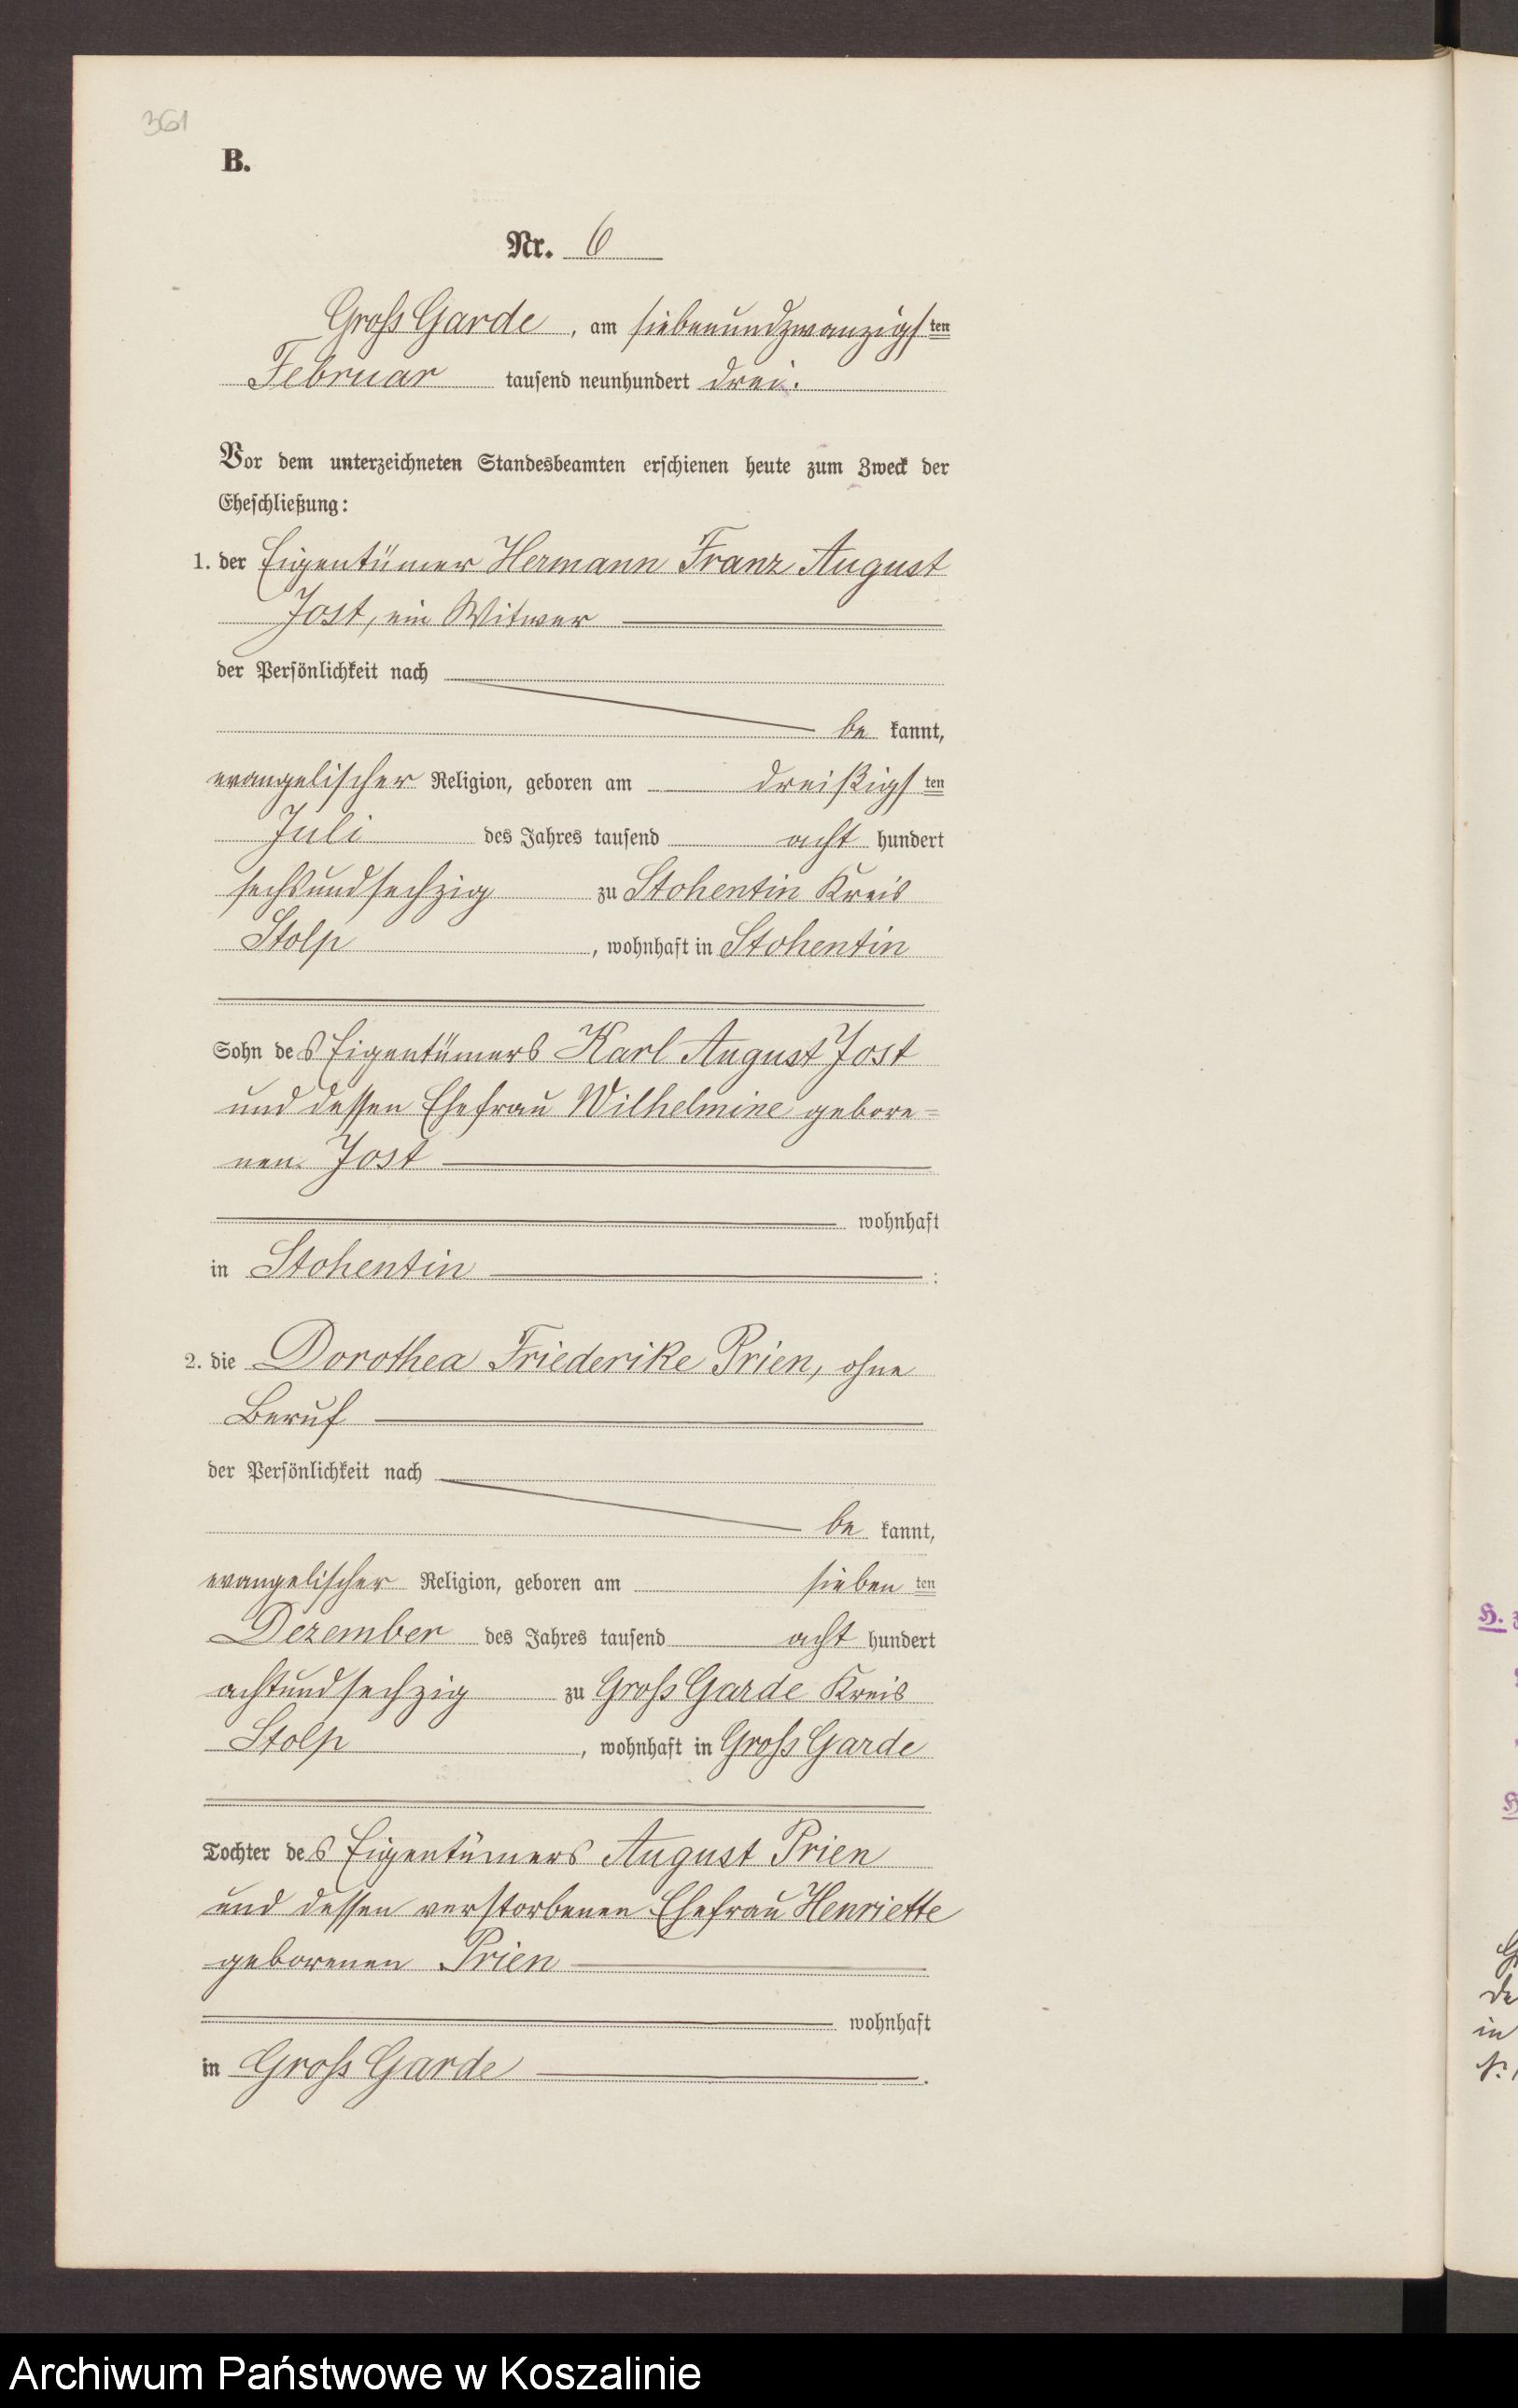 361
B.
Nr. 6
Gross Garde, am siebenundzwanzigsten
Februar tausend neunhundert drei.
Vor dem unterzeichneten Standesbeamten erschienen heute zum Zweck der
Eheschließung:
1. der Eigentümer Hermann Franz August
Jost, ein Witwer
der Persönlichkeit nach
be kannt,
evangelischer Religion, geboren am dreißigsten
Juli des Jahres tausend acht hundert
sechsundsechzig zu Stohentin Kreis
Stolp, wohnhaft in Stohentin
Sohn des Eigentümers Karl August Jost
und dessen Ehefrau Wilhelmine gebore=
nen Jost
wohnhaft
in Stohentin :
2. die Dorothea Friederike Prien, ohne
Beruf
der Persönlichkeit nach
be kannt,
evangelischer Religion, geboren am siebenten
Dezember des Jahres tausend acht hundert
achtundsechzig zu Gross Garde Kreis
Stolp, wohnhaft in Gross Garde
Tochter des Eigentümers August Prien
und dessen verstorbenen Ehefrau Henriette
geborenen Prien
wohnhaft
in Gross Garde .
H.
de
in
Archiwum Państwowe w Koszalinie